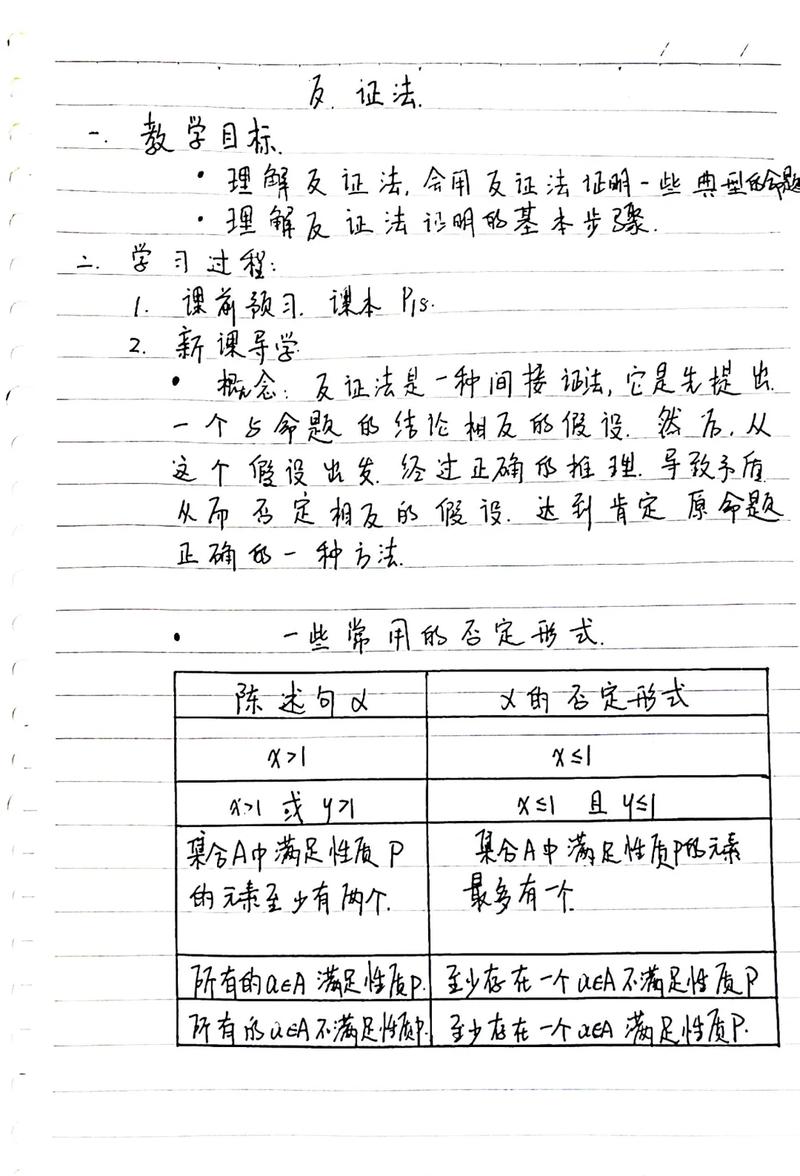 反证法.
一. 教学目标.
• 理解反证法, 会用反证法证明一些典型的命题
• 理解反证法证明的基本步骤.
二. 学习过程:
1. 课前预习. 课本 P15.
2. 新课导学
• 概念: 反证法是一种间接证法, 它是先提出
一个与命题的结论相反的假设. 然后, 从
这个假设出发. 经过正确的推理. 导致矛盾
从而否定相反的假设. 达到肯定原命题
正确的一种方法.
• 一些常用的否定形式.
陈述句α α的否定形式
x>1 x≤1
x>1 或 y>1 x≤1 且 y≤1
集合A中满足性质P 集合A中满足性质P的元素
的元素至少有两个. 最多有一个
所有的a∈A 满足性质P. 至少存在一个a∈A不满足性质P
所有的a∈A不满足性质P. 至少存在一个a∈A 满足性质P.